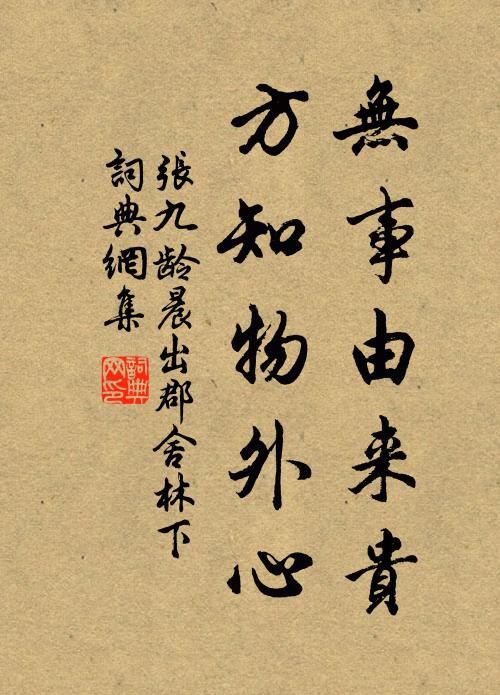 無事由来貴
方知物外心
張九龄晨出郡舍林下
詞典網集
詞典
网印